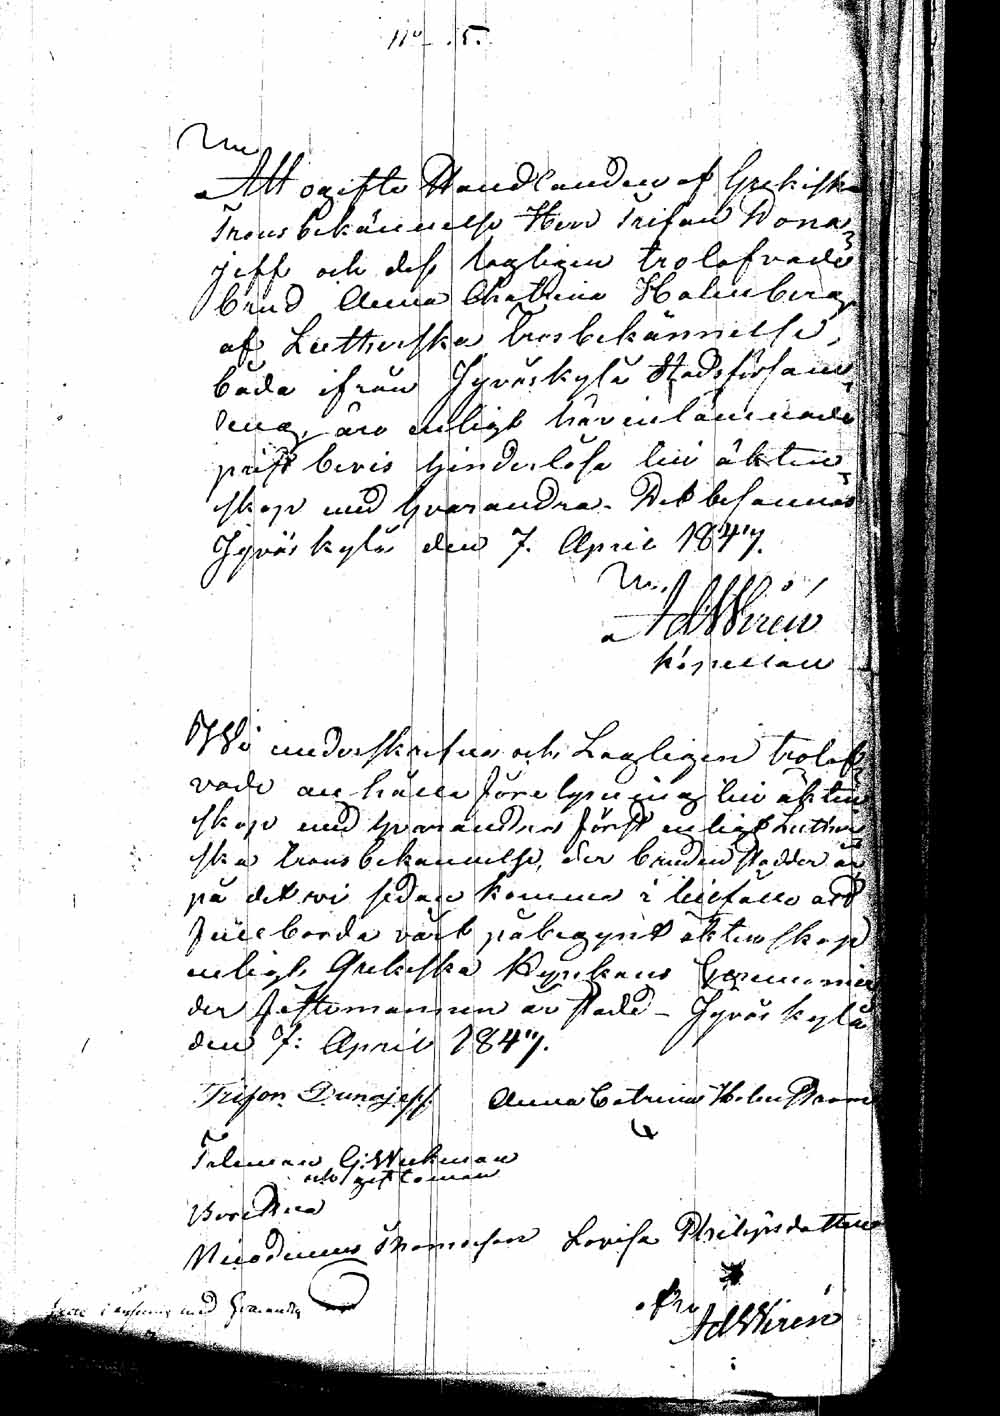 No 5.
Att ogifte Handlanden af Grekiska
Trons bekännelse Herr Trifan Dona
jeff och dess lagligen trolofvade
brud Anna Chatrina Holmberg
af Lutherska Trosbekännelse,
båda ifrån Jyväskylä Stadsförsam
ling, äro enligt här inlämnade
prest bevis hinderlöse till äkten
skap med hvarandra. Det besannas
Jyväskylä den 7. April 1847.
Ad Wirén
Kapellan
Wi underskrefne och Lagligen trolof
vade anhålla före lysning till äkten
skap med hvarandra först enligt Luther
ska trons bekännelse, der bruden stadder är
på det wi sedan komma i tillfälle att
full borda vårt påbegynt äktenskap
enligt Grekiska Kyrkans Ceremonier
der fästemannen är stadd - Jyväskylä
den 7: April 1847.
Trifon Dunajeff Anna Catrina
Taleman G: Wickman
och giftoman
Nicodemus Thomasson Lovisa Philipsdotter
med hvarandra
Ad Wirén